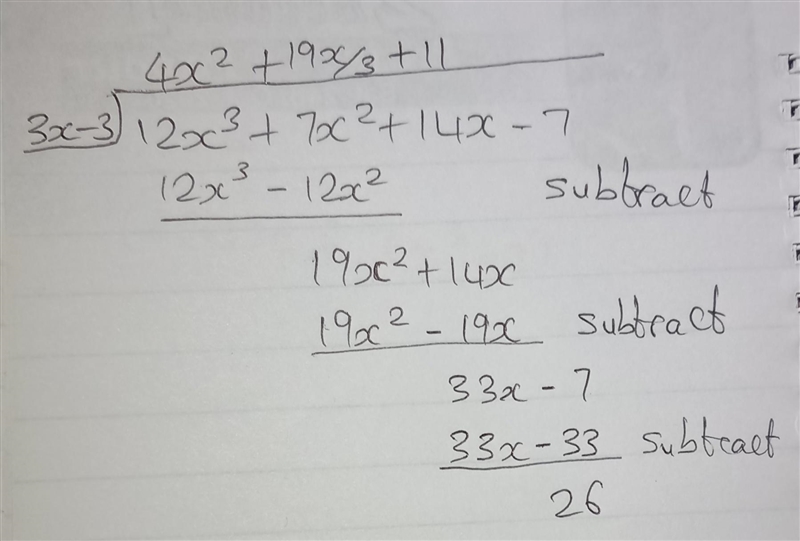 4x² + 19x/3 + 11
3x-3)12x³ + 7x² + 14x - 7
12x³ - 12x² subtract
19x² + 14x
19x² - 19x subtract
33x - 7
33x - 33 subtract
26